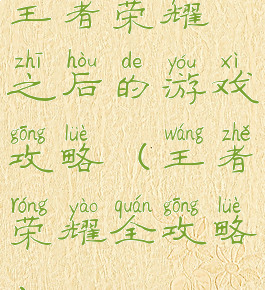 王者荣耀
zhī hòu de yóu xì
之后的游戏
gōng lüè wáng zhě
攻略（王者
róng yào quán gōng lüè
荣耀全攻略